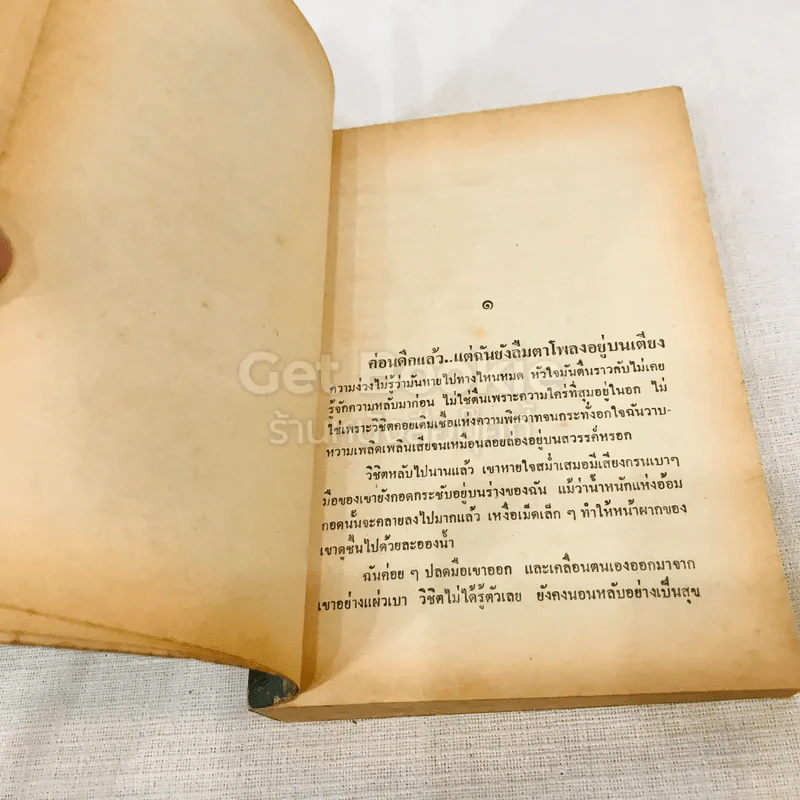 ๑
ค่อนดึกแล้ว..แต่ฉันยังลืมตาโพลงอยู่บนเตียง
ความง่วงไม่รู้ว่ามันหายไปทางไหนหมด หัวใจมันตื่นราวกับไม่เคย
รู้จักความหลับมาก่อน ไม่ใช่ตื่นเพราะความใคร่ที่สุมอยู่ในอก ไม่
ใช่เพราะวิชิตคอยเติมเชื้อแห่งความพิศวาทจนกระทั่งอกใจฉันวาบ-
หวามเพลิดเพลินเสียจนเหมือนลอยล่องอยู่บนสวรรค์หรอก
วิชิตหลับไปนานแล้ว เขาหายใจสม่ำเสมอมีเสียงกรนเบาๆ
มือของเขายังกอดกระชับอยู่บนร่างของฉัน แม้ว่าน้ำหนักแห่งอ้อม
กอดนั้นจะคลายลงไปมากแล้ว เหงื่อเม็ดเล็ก ๆ ทำให้หน้าผากของ
เขาดูชื้นไปด้วยละอองน้ำ
ฉันค่อย ๆ ปลดมือเขาออก และเคลื่อนตนเองออกมาจาก
เขาอย่างแผ่วเบา วิชิตไม่ได้รู้ตัวเลย ยังคงนอนหลับอย่างเป็นสุข